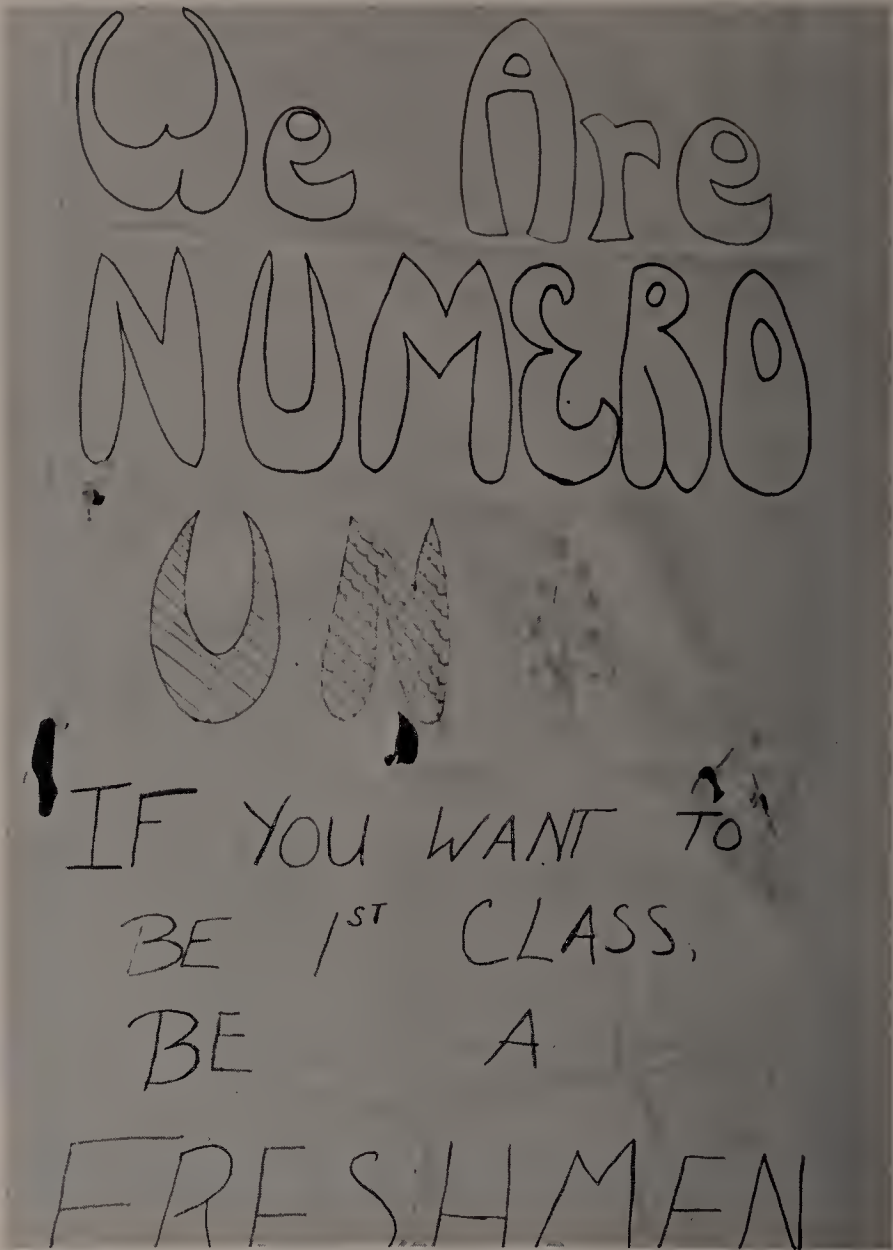 We Are
NUMERO
UN
IF YOU WANT TO
BE 1ST CLASS,
BE A
FRESHMEN